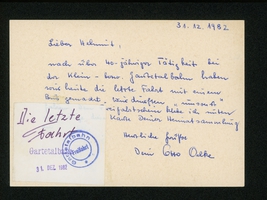 31.12.1982
Lieber Helmut,
nach über 40-jähriger Tätigkeit bei
der Klein- bzw. Gartetalbahn haben
wir heute die letzte Fahrt mit einem
Bus gemacht.
Karte Deiner Heimatsammlung
Herzliche Grüße
Dein Otto
Die letzte
Fahrt
Gartetalbahn
Gartetalbahn
31. DEZ. 1982